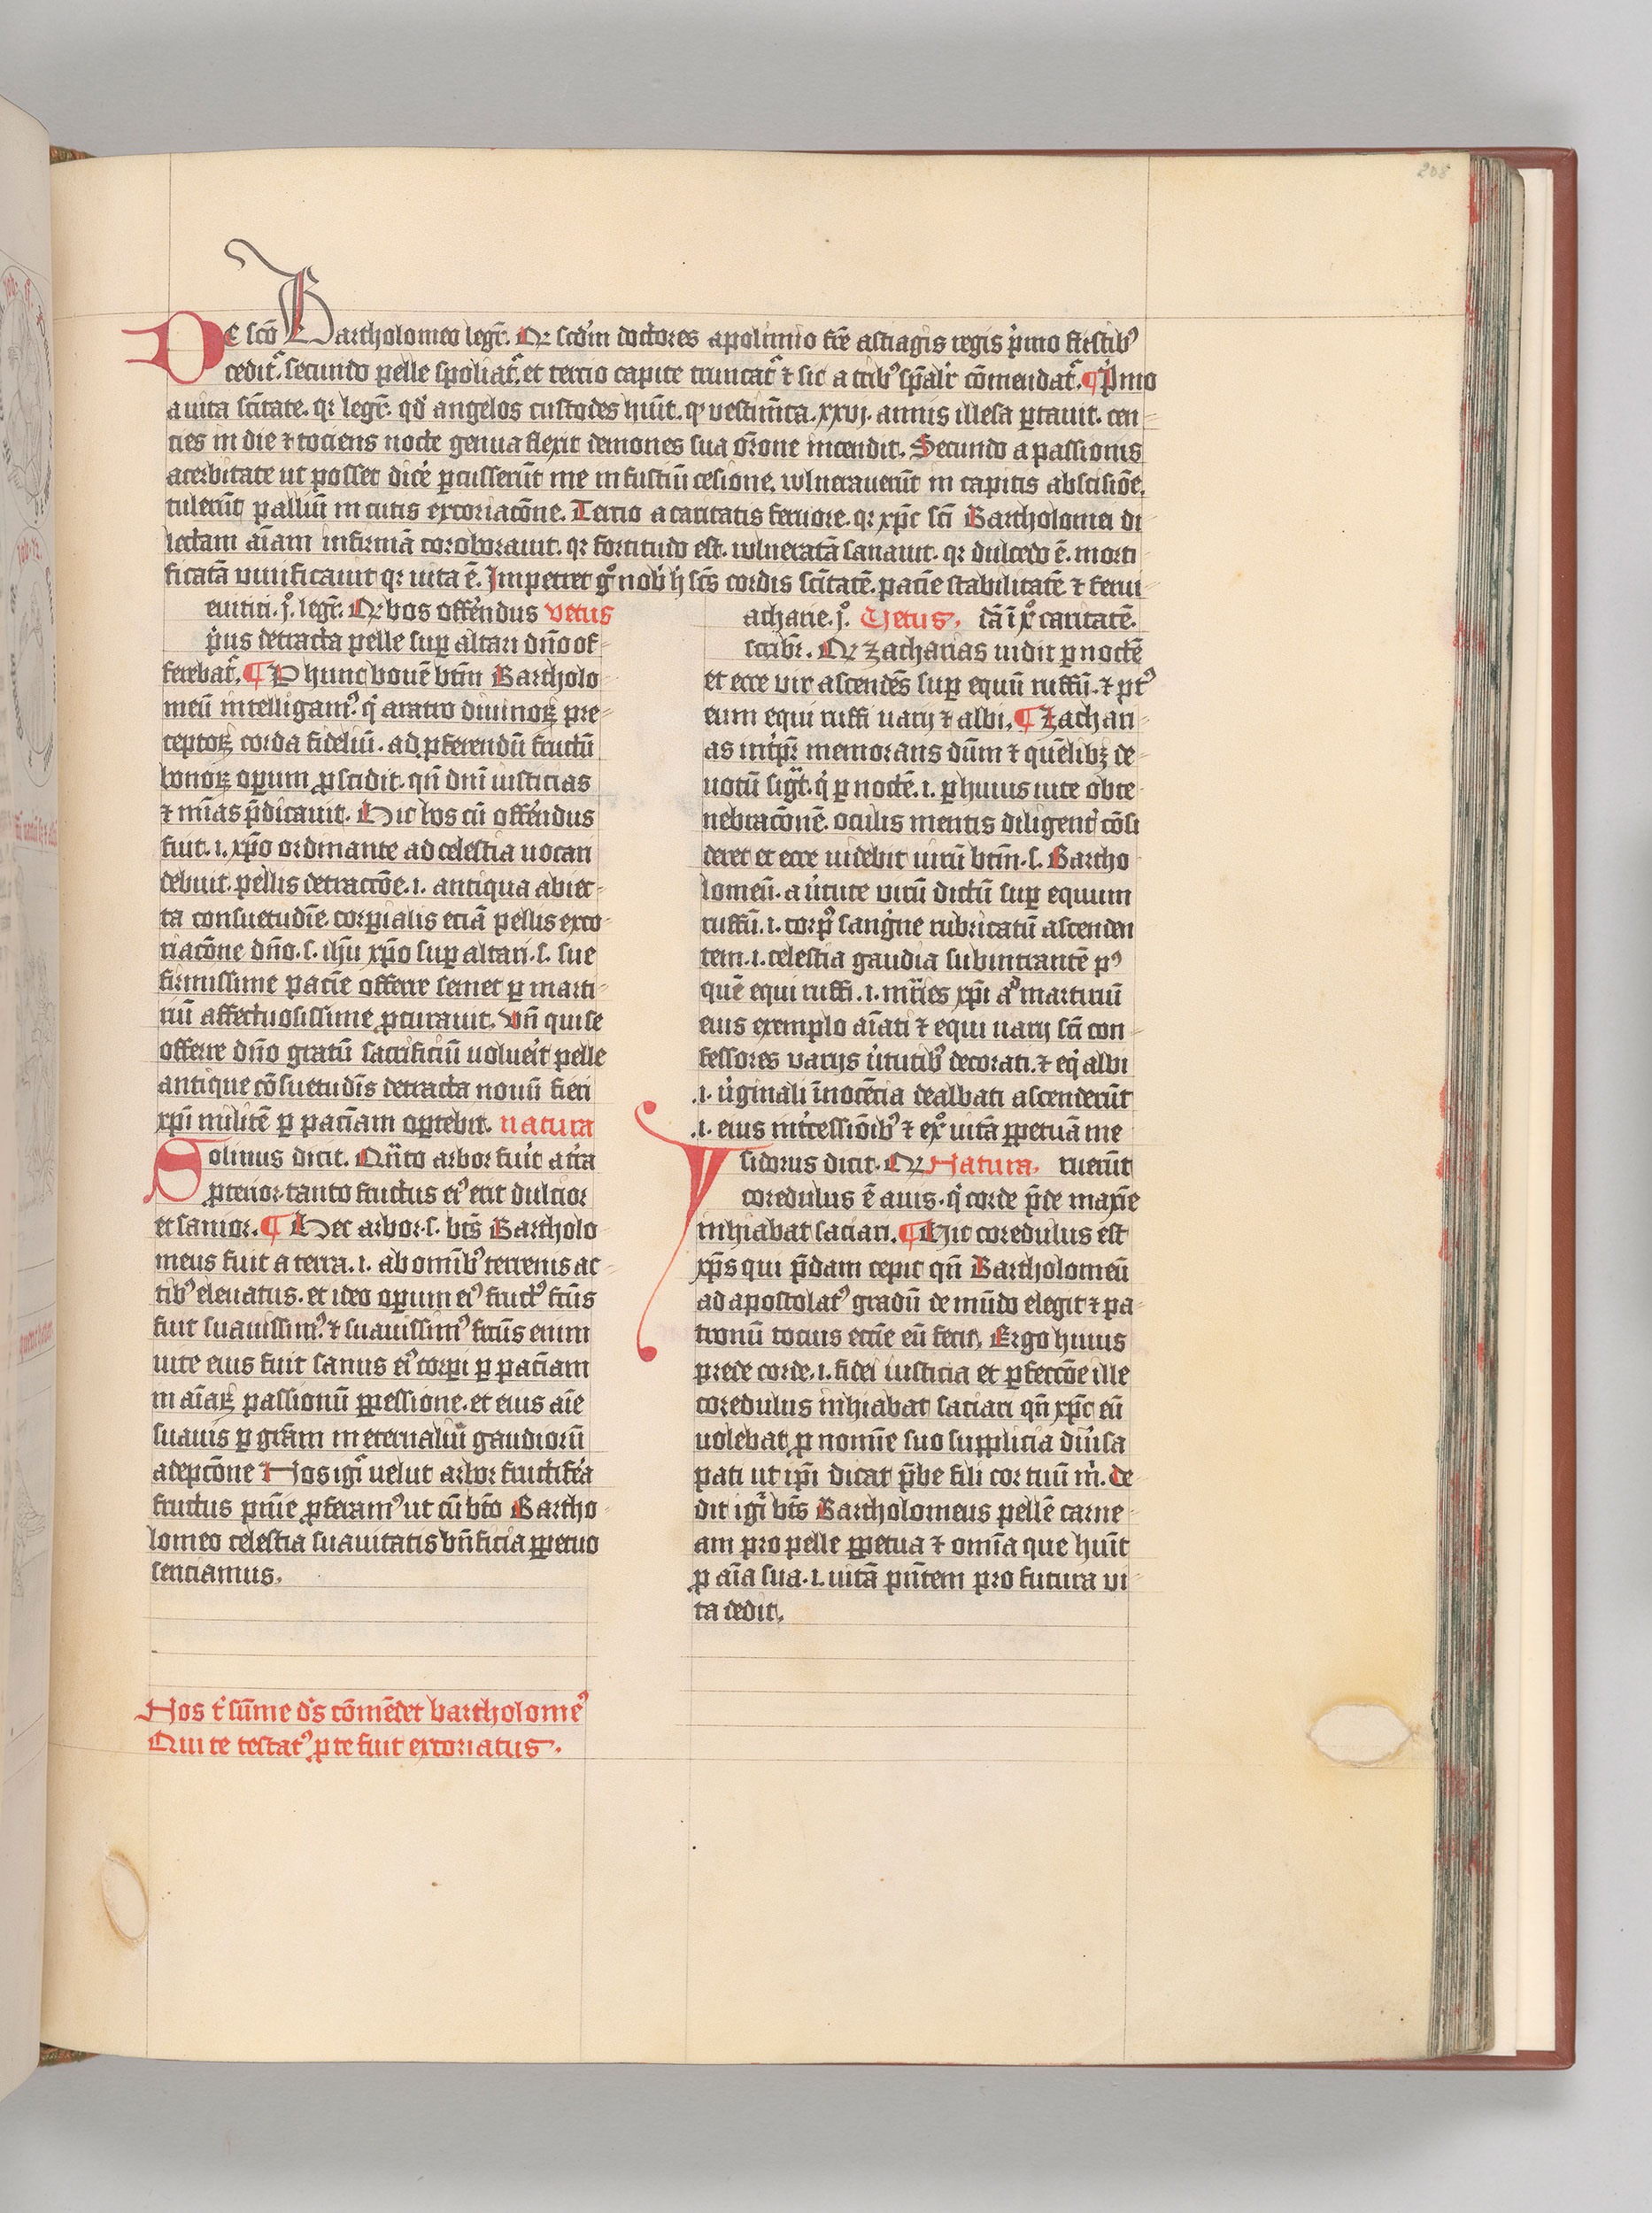 208
De sc̄o Bartholomeo legit̄. Qꝛ scd̓m doctores apolimio fr̄e astiagis regis p̓mo fustibꝰ
cedit᷑. secundo pelle spoliat᷑. et tercio capite truncat᷑ ⁊ sic a tribꝰ sp̄alr̓ cōmendat᷑. ¶ P̓mo
a uita sc̄itate. qꝛ legit̄. qd̓ angelos custodes hūit. ꝙ vestim̄ta. xxvj. annis illesa ꝑtauit. cen-
ties in die ⁊ tociens nocte genua flexit demones sua or̄one incendit. Secundo a passionis
acerbitate ut posset dicē ꝑcusserūt me in fustiū cesione. wlnerauerūt in capitis abscisiōe.
tulerūt palliū in cutis excoriacōne. Tercio a caritatis feruore. qꝛ xp̄c sc̄i Bartholomei di
lectam āiam infirmā coroborauit. qꝛ fortitudo est. wlneratā sanauit. qꝛ dulcedo ē. morti-
ficatā uiuificauit qꝛ uita ē. Impetret gͦ nob̓ h̓ sc̄s cordis sc̄itatē. paciē stabilitatē ⁊ ferui
euitici. jͦ. legit̄. Qꝛ bos offēndus vetus
p̓us detracta pelle suꝑ altari dn̄o of-
ferebat᷑. ¶ P hunc bouē btm̄ Bartholo-
meū intelligamꝰ. q̓ aratro diuinoꝝ pre-
ceptoꝝ corda fideliū. ad ꝓferendū fructū
bonoꝝ oꝑum ꝓscidit. qn̄ dn̄i iusticias
⁊ mīas p̄dicauit. Hic bos cū offēndus
fuit. i. xp̄o ordinante ad celestia uocari
debuit. pellis detraccōe. i. antiqua abiec-
ta consuetudīe. corꝑialis eciā pellis exco-
riacōne dn̄o. s. ih̄u xp̄o suꝑ altari. s. sue
firmissime paciē offerre semet ꝑ marti-
riū affectuosissime ꝓcurauit. Vn̄ qui se
offerre dn̄o gratū sacrificiū uoluerit pelle
antique cōsuetudīs detracta nouū fieri
xp̄i militē ꝑ paciam oꝑtebit. natura
Solinus dicit. Qn̄to arbor fuit a tr̄a
ꝓcerior. tanto fructus eiꝰ erit dulcior
et sanior. ¶ Hec arbor. s. bt̄s Bartholo-
meus fuit a terra. i. ab omībꝰ terrenis ac-
tibꝰ eleuatus. et ideo oꝑum eiꝰ fructꝰ sc̄us
fuit suauissimꝰ. ⁊ suauissimꝰ fructus enim
uite eius fuit sanus eiꝰ corꝑi ꝑ paciam
in āiaꝝ passionū ꝑpessione. et eius aīe
suauis ꝑ grām in eternaliū gaudiorū
adepcōne Nos igit᷑ uelut arbor fructifēa
fructus pnīe ꝓferamꝰ ut cū bt̄o Bartho-
lomeo celestia suauitatis bn̄ficia ꝑpetuo
senciamus.
acharie. jͦ. Vetus. tā ī xͦ caritatē.
scribit̄. Qꝛ zacharias uidit ꝑ noctē
et ecce vir ascendēs suꝑ equū ruffū. ⁊ pꝰt
eum equi ruffi uarij ⁊ albi. ¶ Zachari-
as int̓pr̄. memorans dn̄m ⁊ quēlibꝫ de-
uotū sigt̄. q̓ ꝑ noctē. i. ꝑ huius uite obte-
nebracōnē. oculis mentis diligent̓ cōsi
deret et ecce uidebit uirū btm̄. s. Bartho
lomeū. a u̓tute virū dictū suꝑ equum
ruffū. i. corpꝰ sangīne rubricatū ascenden
tem. i. celestia gaudia subintrantē pꝰ
quē equi ruffi. i. mr̄ires xp̄i ad martiriū
eius exemplo aīati ⁊ equi uarij sc̄i con-
fessores varijs u̓tutibꝰ decorati. ⁊ eq̓ albi
.i. u̓ginali īnocēcia dealbati ascenderūt
.i. eius int̓cessiōibꝰ ⁊ exͦ uitā ꝑpetuā me
Ysidorus dicit. Qꝛ Natura. ruerūt
coredulus ē auis. q̓ corde p̄de maxīe
inhiabat saciari. ¶ Hic coredulus est
xp̄s qui p̄dam cepit qn̄ Bartholomeū
ad apostolatꝰ gradū de mūdo elegit ⁊ pa-
tronū tocius ecc̄ie eū fecit. Ergo huius
prede corde. i. fidei iusticia et ꝑfeccōe ille
coredulus inhiabat saciari qn̄ xp̄c eū
uolebat ꝓ nomīe suo supplicia diu̓sa
pati ut ip̄i dicat p̄be fili cor tuū m̓. De
dit igit᷑ bt̄s Bartholomeus pellē carne-
am pro pelle ꝑpetua ⁊ omīa que hūit
ꝓ aīa sua. i. uitā pn̄tem pro futura vi
ta dedit.
Nos t̓ sūme ds̓ cōmēdet bartholomeꝰ
Qui te testatꝰ ꝓ te fuit excoriatus.